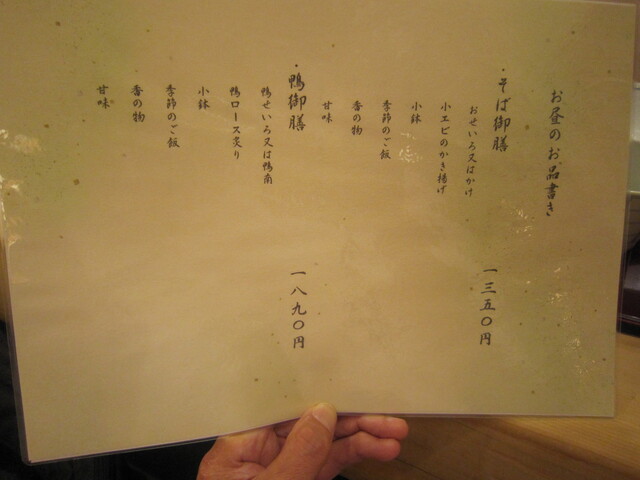 お昼のお品書き
・そば御膳
一三五〇円
おせいろ又はかけ
小エビのかき揚げ
小鉢
季節のご飯
香の物
甘味
・鴨御膳
一八九〇円
鴨せいろ又は鴨南
鴨ロース炙り
小鉢
季節のご飯
香の物
甘味